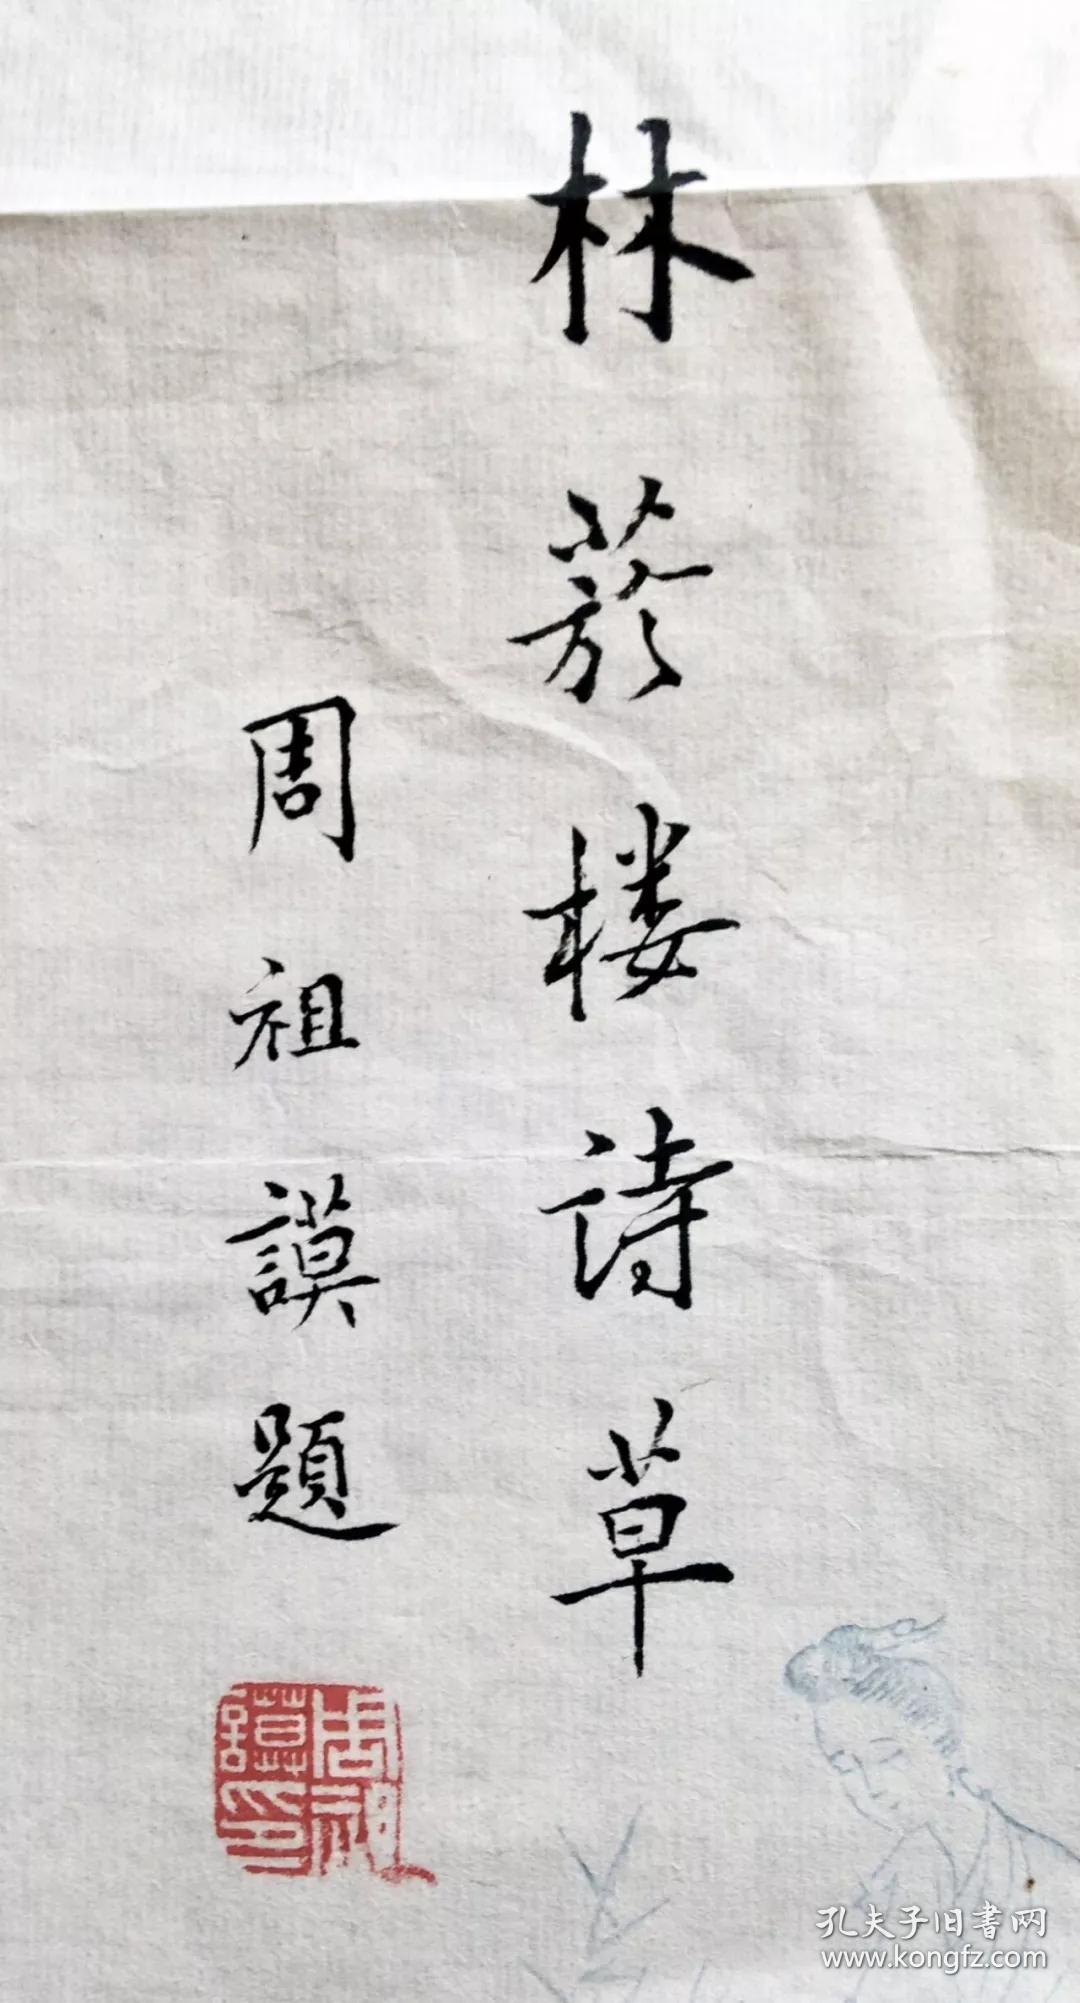 林菸楼诗草
周祖謨題
周祖謨印
孔夫子旧書网
www.kongfz.com